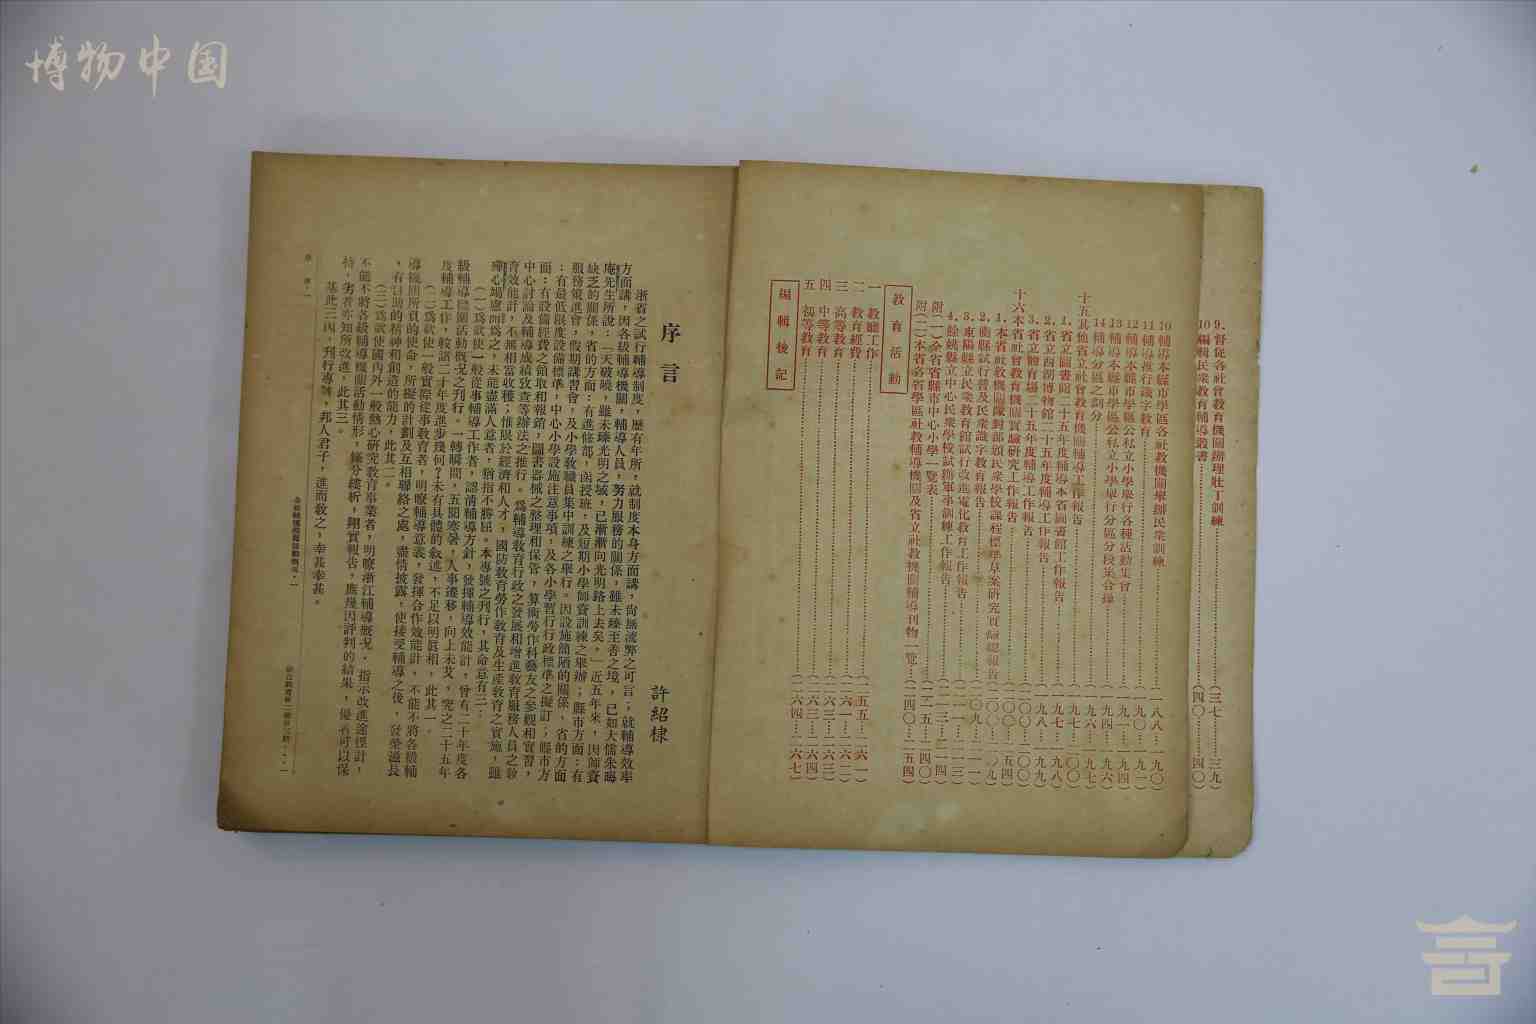 博物中国
9.督促各社會教育機關辦理壯丁訓練……(三七…三九)
10編輯民衆教育輔導叢書……(四〇…四〇)
10輔導本縣市學區各社教機關舉辦民衆訓練……(一八八…一九〇)
11輔導推行識字教育……(一九〇…一九一)
12輔導本縣市學區公私立小學舉行各種活動集會……(一九一…一九四)
13輔導本縣市學區公私立小學舉行分區分段集合操……(一九四…一九六)
14輔導分區之劃分……(一九六…一九七)
十五其他省立社會教育機關輔導工作報告……(一九七…二〇〇)
1.省立圖書館二十五年度輔導本省圖書館工作報告……(一九七…一九八)
2.省立西湖博物館二十五年度輔導工作報告……(一九八…一九九)
3.省立體育場二十五年度輔導工作報告
十六本省社會教育機關實驗研究工作報告
1.本省社教機關隊對部頒民衆學校課程標準草案研究
2.衢縣試行普及民衆識字教育報告
3.東陽縣立民衆教育館試行改進電化教育工作報告
4.餘姚縣立中心民衆學校試辦軍事訓練工作報告……(二一三…二一四)
附(一)全省省縣市中心小學一覽表
附(二)本省各省學區社教輔導機關及省立社教機關輔導刊物一覽
教育活動
一 教廳工作……(一五五…一六一)
二 教育經費……(一六一…一六二)
三 高等教育……(一六二…一六三)
四 中等教育……(一六三…一六四)
五 初等教育……(一六四…一六七)
編輯後記
序言
許紹棣
浙省之試行輔導制度，歷有年所，就制度本身方面講，尙無流弊之可言；就輔導效率
方面講，因各級輔導機關，輔導人員，努力服務的關係，雖未臻至善之境，已如大儒朱晦
庵先生所說：「天破曉，雖未臻光明之域，已漸漸向光明路上去矣，」近五年來，因師資
缺乏的關係，省的方面：有進修部，函授班，及短期小學師資訓練之舉辦；縣市方面：有
服務策進會，假期講習會，及小學教職員集中訓練之舉行。因設施簡陋的關係，省的方面
：有最低限度設備標準，中心小學設施注意事項，及各小學暫行行政標準之擬訂；縣市方
面：有設備經費之領取和報銷，圖書器械之整理和保管，算術勞作科藝友之參觀和實習，
中心討論及輔導成績攷查等辦法之推行。爲輔導教育行政之發展和增進教育服務人員之敎
育效能計，不無相當收穫；惟限於經濟和人才，國防教育勞作教育及生產教育之實施，雖
殫心竭慮而爲之，未能盡滿人意者，猶指不勝屈。本專號之刊行，其命意有三：
(一)爲欲使一般從事輔導工作者，認淸輔導方針，發揮輔導效能計，曾有二十年度各
級輔導機關活動概况之刊行。一轉瞬間，五閱寒暑，人事遷移，向上未艾，究之二十五年
度輔導工作，較諸二十年度進步幾何？未有具體的敘述，不足以明眞相，此其一。
(二)爲欲使一般實際從事教育者，明瞭輔導意義，發揮合作效能計，不能不將各級輔
導機關所負的使命，所擬的計劃及互相聯絡之處，盡情披露，使接受輔導之後，發榮滋長
，有自助的精神和創造的能力，此其二。
(三)爲欲使國內外一般熱心研究教育事業者，明瞭浙江輔導概况，指示改進途徑計，
不能不將各級輔導機關活動情形，縷分縷析，翔實報告，庶幾因評判的結果，優者可以保
持，劣者亦知所改進，此其三。
基此三因，刊行專號，邦人君子，進而敎之，幸甚幸甚。
序言